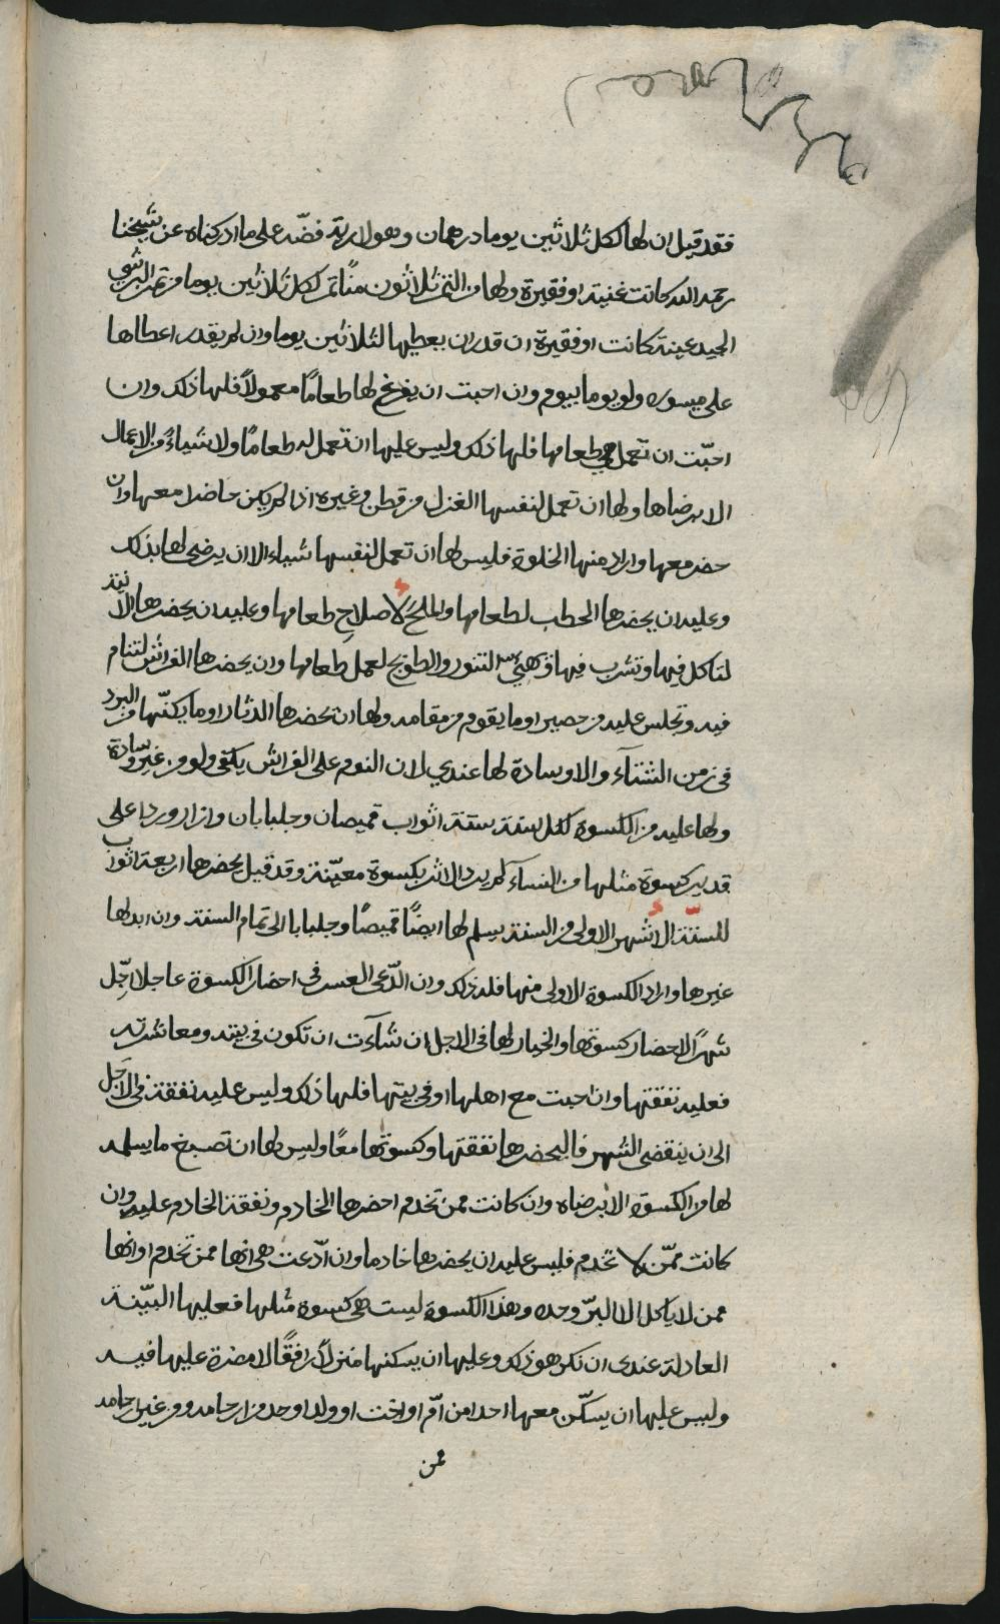 فقد قيل ان لها لكل ثلاثين يوما درهمان وهو لارية فضّة على ما ادركناه عن شيخنا
رحمه الله كانت غنية او فقيرة ولها من التمر ثلاثون منًّا تمر لكل ثلاثين يوما من تمر البرشي
الجيد عينة كانت او فقيرة ان قدر ان يعطيها لثلاثين يوما وان لم يقدر اعطاها
على ميسوره ولو يوما بيوم وان احبت ان يفرغ لها طعامًا معمولًا فلها ذلك وان
احبّت ان تعمل هي طعامها فلها ذلك وليس عليها ان تعمل له طعامًا ولا شياءً من الاعمال
الا برضاها ولها ان تعمل لنفسها الغزل من قطن وغيره اذا لم يكن حاضرا معها وان
حضر معها واراد منها الخلوة فليس لها ان تعمل لنفسها شياء الا ان يرضى لها بذلك
وعليه ان يحضرها الحطب لطعامها والملح لاصلاح طعامها وعليه ان يحضرها الانية
لتاكل فيها وتشرب فيها وتهيّئ التنور والطوبج لعمل طعامها وان يحضرها الفراش لتنام
فيه وتجلس عليه من حصير او ما يقوم من مقامه ولها ان يحضرها الدثار او ما يكنّها من البرد
في زمن الشتآء والا وسادة لها عندي لان النوم على الفراش يكفي ولو من غير وسادة
ولها عليه من الكسوة لكل سنة ستة اثواب قميصان وجلبابان وازار ورداء على
قدر كسوة مثلها من النسآء لم يرد الاثر بكسوة معيّنة وقد قيل يحضرها اربعة اثواب
للستّة الاشهر الاولى من السنة يسلم لها ايضًا قميصًا وجلبابا الى تمام السنة وان ابدلها
غيرها واراد الكسوة الاولى منها فله ذلك وان ادّعى العسر في احضار الكسوة عاجلا اجّل
شهرًا لاحضار كسوتها والخيار لها في الاجل ان شآءت ان تكون في بيته ومعاشرته
فعليه نفقتها وان احبت مع اهلها او في بيتها فلها ذلك وليس عليه نفقة في الاجل
الى ان ينقضي الشهر فاليحضرها نفقتها وكسوتها معًا وليس لها ان تصبغ ما يسلمه
لها من الكسوة الا برضاه وان كانت ممن تخدم احضرها الخادم ونفقة الخادم عليه وان
كانت ممّن لا تخدم فليس عليه ان يحضرها خادما وان ادّعت هي انها ممن تخدم او انها
ممن لا ياكل الا البرّ وحده وهذا الكسوة ليست هي كسوة مثلها فعليها البيّنة
العادلة عندي ان نكر هو ذلك وعليها ان يسكنها منزلًا رافقًا لا مضرة عليها فيه
وليس عليها ان يسكّن معها احدا من امّ او اخت او ولد او جد من ارحامه ومن غير ارحامه
ممن